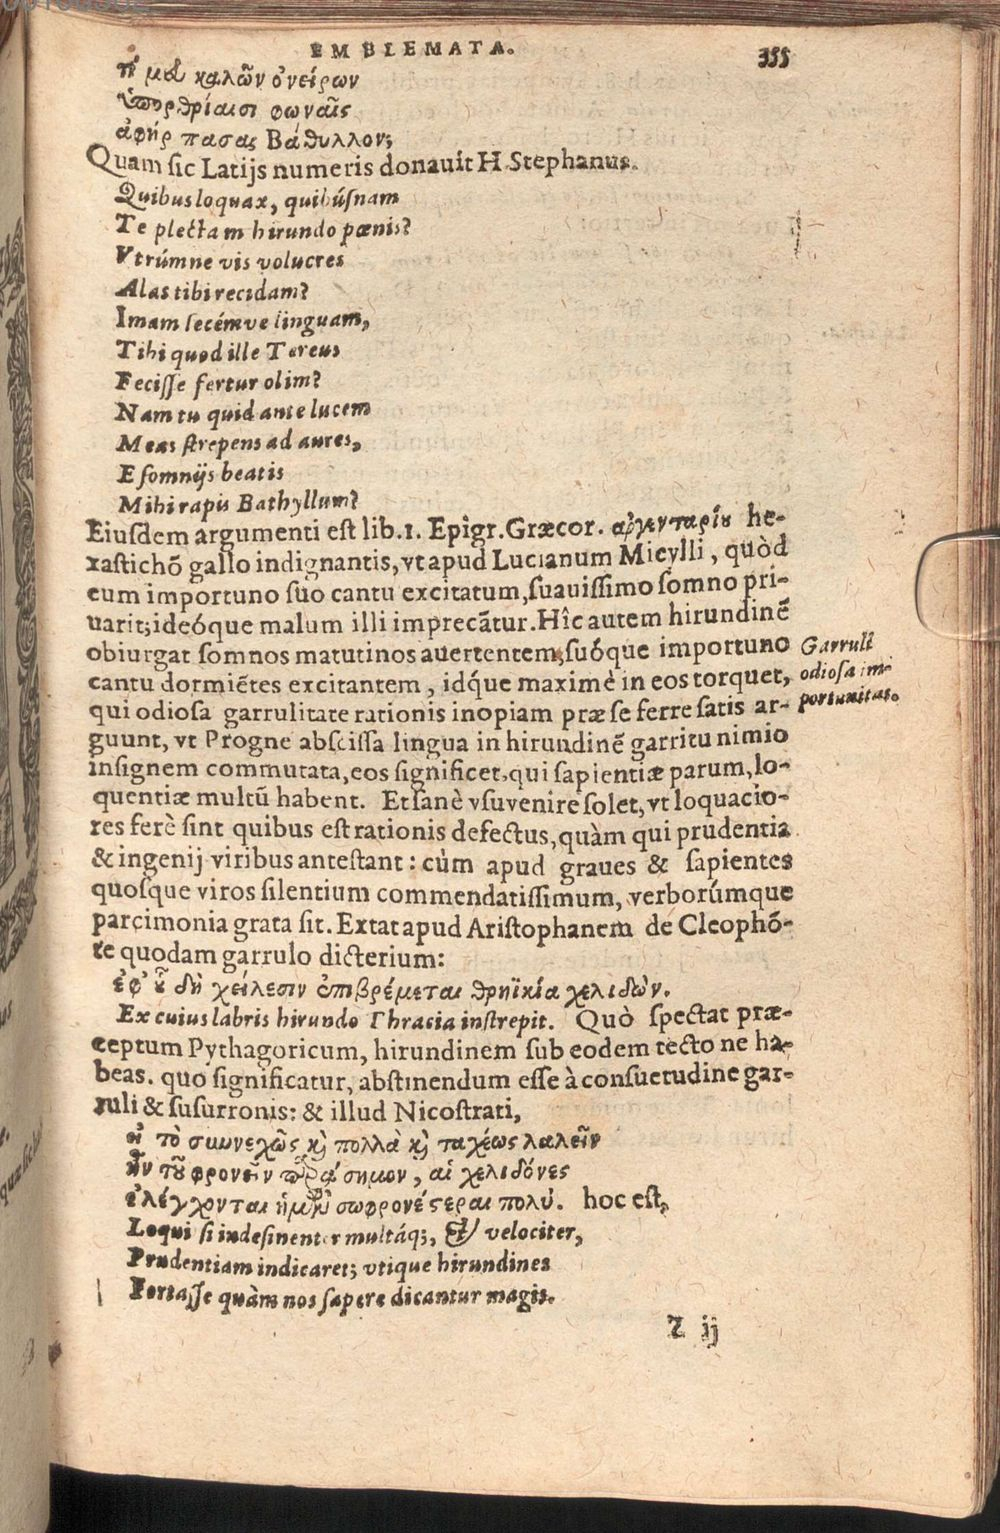 EMBLEMATA. 355
τί μευ καλῶν ὀνείρων
ὑπορθρίαισι φωναῖς
ἀφήρπασας Βάθυλλον;
Quam sic Latijs numeris donauit H. Stephanus.
Quibus loquax, quibúsnam
Te plectam hirundo pœnis?
Vtrúmne vis volucres
Alas tibi recidam?
Imam secémve linguam,
Tibi quod ille Tereus
Fecisse fertur olim?
Nam tu quid ante lucem
Meas strepens ad aures,
E somnijs beatis
Mihi rapis Bathyllum?
Eiusdem argumenti est lib. 1. Epigr. Græcor. ἀργενταρίου he-
xastichõ gallo indignantis, vt apud Lucianum Micylli, quòd
eum importuno suo cantu excitatum, suauissimo somno pri-
uarit; ideóque malum illi imprecãtur. Hîc autem hirundinẽ
obiurgat somnos matutinos auertentem, suóque importuno
cantu dormiẽtes excitantem, idq́ue maximè in eos torquet,
qui odiosa garrulitate rationis inopiam præ se ferre satis ar-
guunt, vt Progne abscissa lingua in hirundinẽ garritu nimio
insignem commutata, eos significet, qui sapientiæ parum, lo-
quentiæ multũ habent. Et sanè vsuvenire solet, vt loquacio-
res ferè sint quibus est rationis defectus, quàm qui prudentia
& ingenij viribus antestant: cùm apud graues & sapientes
quosque viros silentium commendatissimum, verborúmque
parcimonia grata sit. Extat apud Aristophanem de Cleophõ-
te quodam garrulo dicterium:
ἐφ' οὗ δὴ χείλεσιν ἐπιβρέμεται θρηϊκία χελιδών.
Ex cuius labris hirundo Thracia instrepit. Quò spectat præ-
ceptum Pythagoricum, hirundinem sub eodem tecto ne ha-
beas. quo significatur, abstinendum esse à consuetudine gar-
ruli & susurronis: & illud Nicostrati,
εἰ τὸ συνεχῶς κỳ πολλὰ κỳ ταχέως λαλεῖν
ἦν τοῦ φρονεῖν παράσημον, αἱ χελιδόνες
ἐλέγχονται ἡμῶν σωφρονέστεραι πολύ. hoc est,
Loqui si indesinenter multáq;, & velociter,
Prudentiam indicaret; vtique hirundines
Fortasse quàm nos sapere dicantur magis.
Z ij
Garruli
odiosa im-
portunitas.